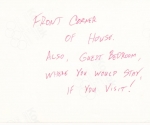 FRONT CORNER
OF HOUSE.
ALSO, GUEST BEDROOM,
WHERE YOU WOULD STAY,
IF YOU VISIT!